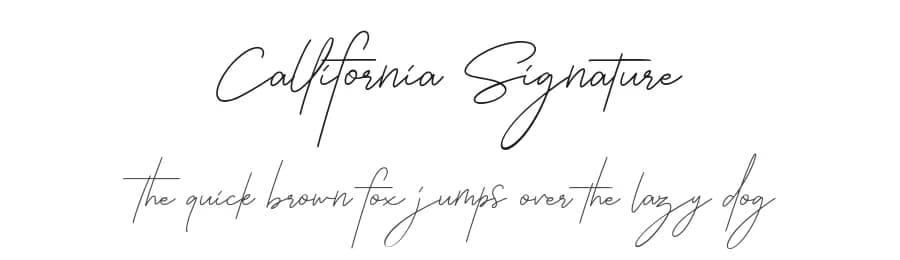 Callifornia Signature
the quick brown fox jumps over the lazy dog